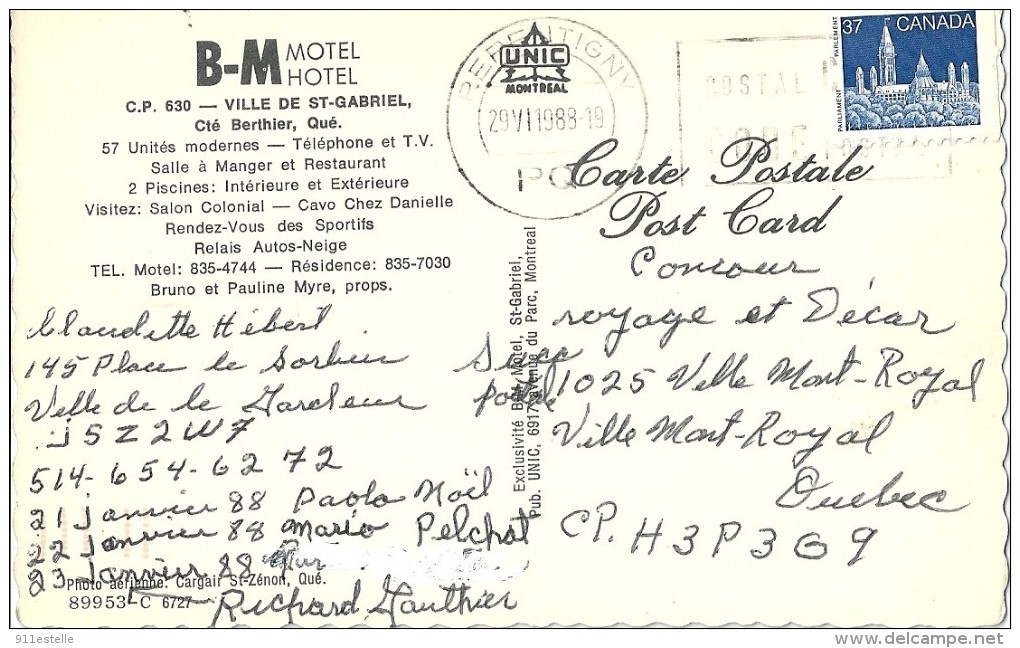 B-M MOTEL
HOTEL
C.P. 630 — VILLE DE ST-GABRIEL,
Cté Berthier, Qué.
57 Unités modernes — Téléphone et T.V.
Salle à Manger et Restaurant
2 Piscines: Intérieure et Extérieure
Visitez: Salon Colonial — Cavo Chez Danielle
Rendez-Vous des Sportifs
Relais Autos-Neige
TEL. Motel: 835-4744 — Résidence: 835-7030
Bruno et Pauline Myre, props.
Claudette Hébert
145 Place le
Ville de le
J5Z2W7
514-654-6272
21 Janvier 88 Paolo Noël
22 Janvier 88 Mario Pelchat
23 Janvier 88
Richard Gauthier
Photo aérienne: Cargair St-Zénon, Qué.
89953-C 6727
UNIC
MONTREAL
REPENTIGNY
29 VI 1988-19
PQ
POSTAL
CODE
37 CANADA
PARLEMENT
PARLIAMENT
Carte Postale
Post Card
Exclusivité B-M Motel, St-Gabriel,
Pub. UNIC, 6917 avenue du Parc, Montreal
Concour
voyage et Décar
1025 Ville Mont-Royal
Ville Mont-Royal
Quebec
CP. H3P3G9
911estelle
delcampe.net